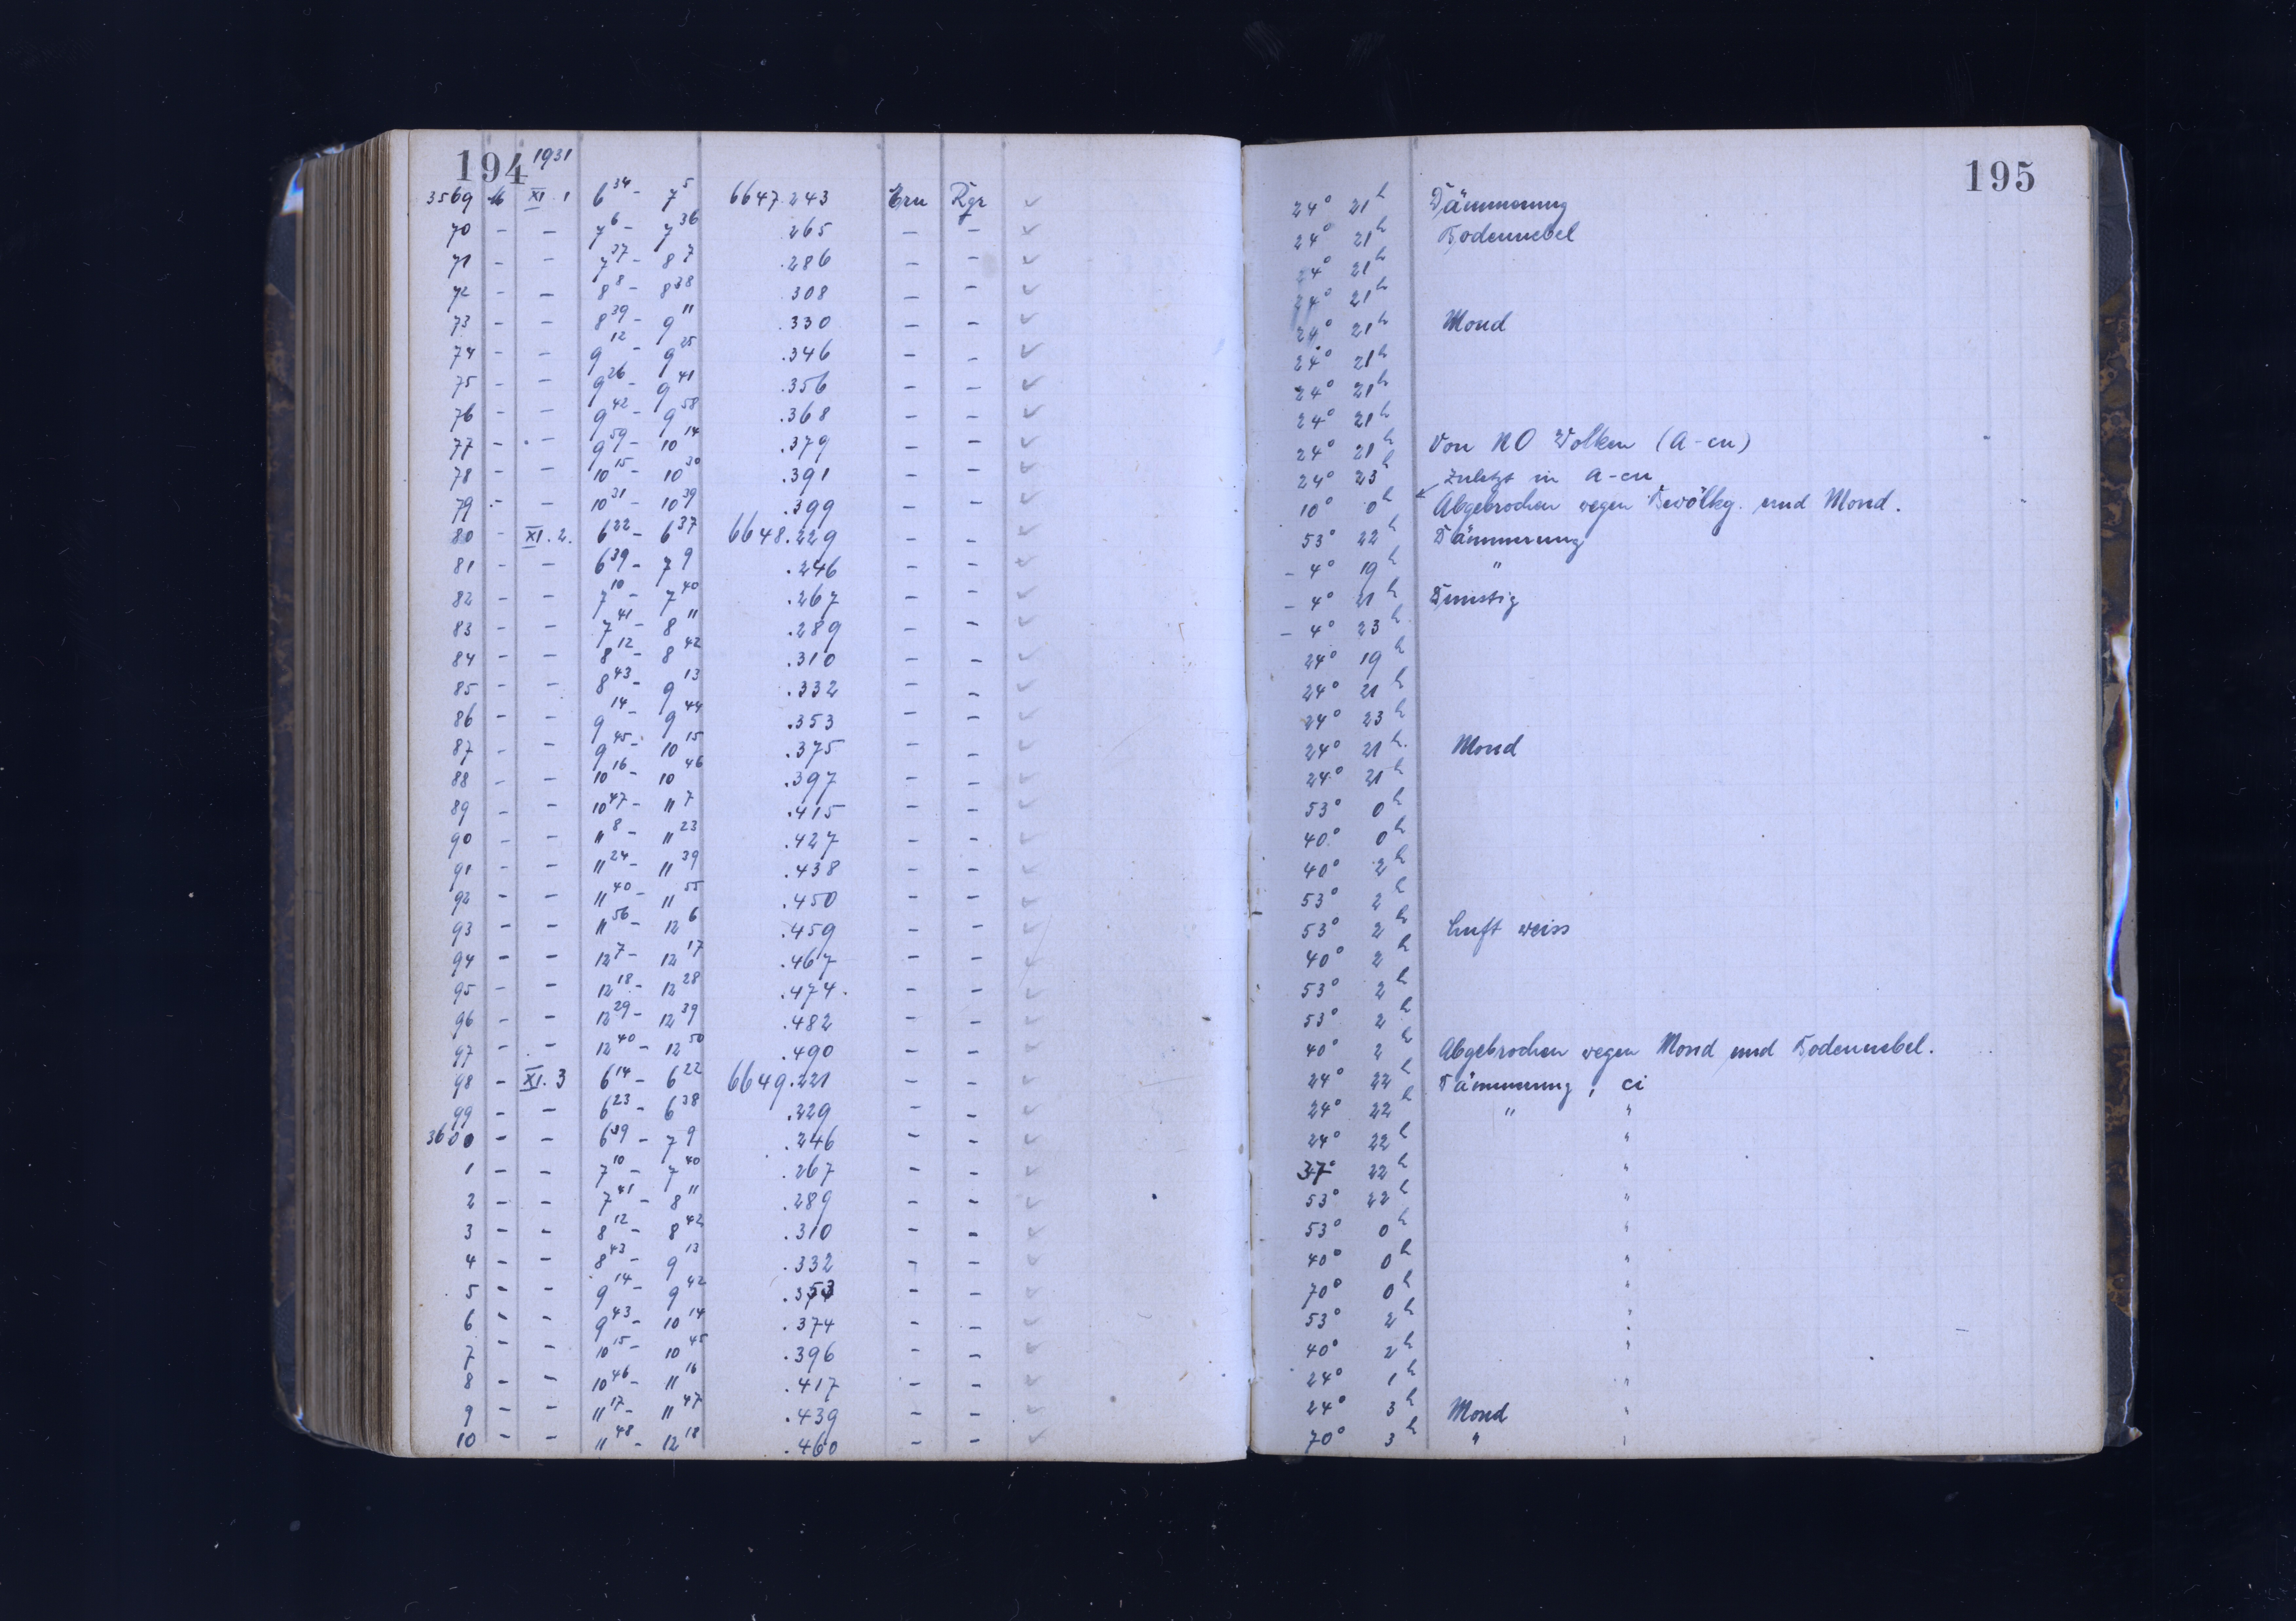 194 1931
3569 M XI. 1 6 34 - 7 5 6647.243 Ern Rgr
70 - - 7 6 - 7 36 .265 - -
71 - - 7 37 - 8 7 .286 - -
72 - - 8 8 - 8 38 .308 - -
73 - - 8 39 - 9 11 .330 - -
74 - - 9 12 - 9 25 .346 - -
75 - - 9 26 - 9 41 .356 - -
76 - - 9 42 - 9 58 .368 - -
77 - - 9 59 - 10 14 .379 - -
78 - - 10 15 - 10 30 .391 - -
79 - - 10 31 - 10 39 .399 - -
80 - XI. 2. 6 22 - 6 37 6648.229 - -
81 - - 6 39 - 7 9 .246 - -
82 - - 7 10 - 7 40 .267 - -
83 - - 7 41 - 8 11 .289 - -
84 - - 8 12 - 8 42 .310 - -
85 - - 8 43 - 9 13 .332 - -
86 - - 9 14 - 9 44 .353 - -
87 - - 9 45 - 10 15 .375 - -
88 - - 10 16 - 10 46 .397 - -
89 - - 10 47 - 11 7 .415 - -
90 - - 11 8 - 11 23 .427 - -
91 - - 11 24 - 11 39 .438 - -
92 - - 11 40 - 11 55 .450 - -
93 - - 11 56 - 12 6 .459 - -
94 - - 12 7 - 12 17 .467 - -
95 - - 12 18 - 12 28 .474 - -
96 - - 12 29 - 12 39 .482 - -
97 - - 12 40 - 12 50 .490 - -
98 - XI. 3 6 14 - 6 22 6649.221 - -
99 - - 6 23 - 6 38 .229 - -
3600 - - 6 39 - 7 9 .246 - -
1 - - 7 10 - 7 40 .267 - -
2 - - 7 41 - 8 11 .289 - -
3 - - 8 12 - 8 42 .310 - -
4 - - 8 43 - 9 13 .332 - -
5 - - 9 14 - 9 42 .353 - -
6 - - 9 43 - 10 14 .374 - -
7 - - 10 15 - 10 45 .396 - -
8 - - 10 46 - 11 16 .417 - -
9 - - 11 17 - 11 47 .439 - -
10 - - 11 48 - 12 18 .460 - -
195
24° 21h Dämmerung
24° 21h Bodennebel
24° 21h
24° 21h
24° 21h Mond
24° 21h
24° 21h
24° 21h
24° 21h Von NO Wolken (a-cu)
24° 23h Zuletzt in a-cu
10° 0h Abgebrochen wegen Bewölkg. und Mond.
53° 22h Dämmerung
- 4° 19h "
- 4° 21h Dunstig
- 4° 23h
24° 19h
24° 21h
24° 23h
24° 21h Mond
24° 21h
53° 0h
40° 0h
40° 2h
53° 2h
53° 2h Luft weiss
40° 2h
53° 2h
53° 2h
40° 2h Abgebrochen wegen Mond und Bodennebel.
24° 22h Dämmerung, ci
24° 22h " "
24° 22h "
37° 22h "
53° 22h "
53° 0h "
40° 0h "
70° 0h "
53° 2h "
40° 2h "
24° 1h "
24° 3h Mond "
70° 3h " "